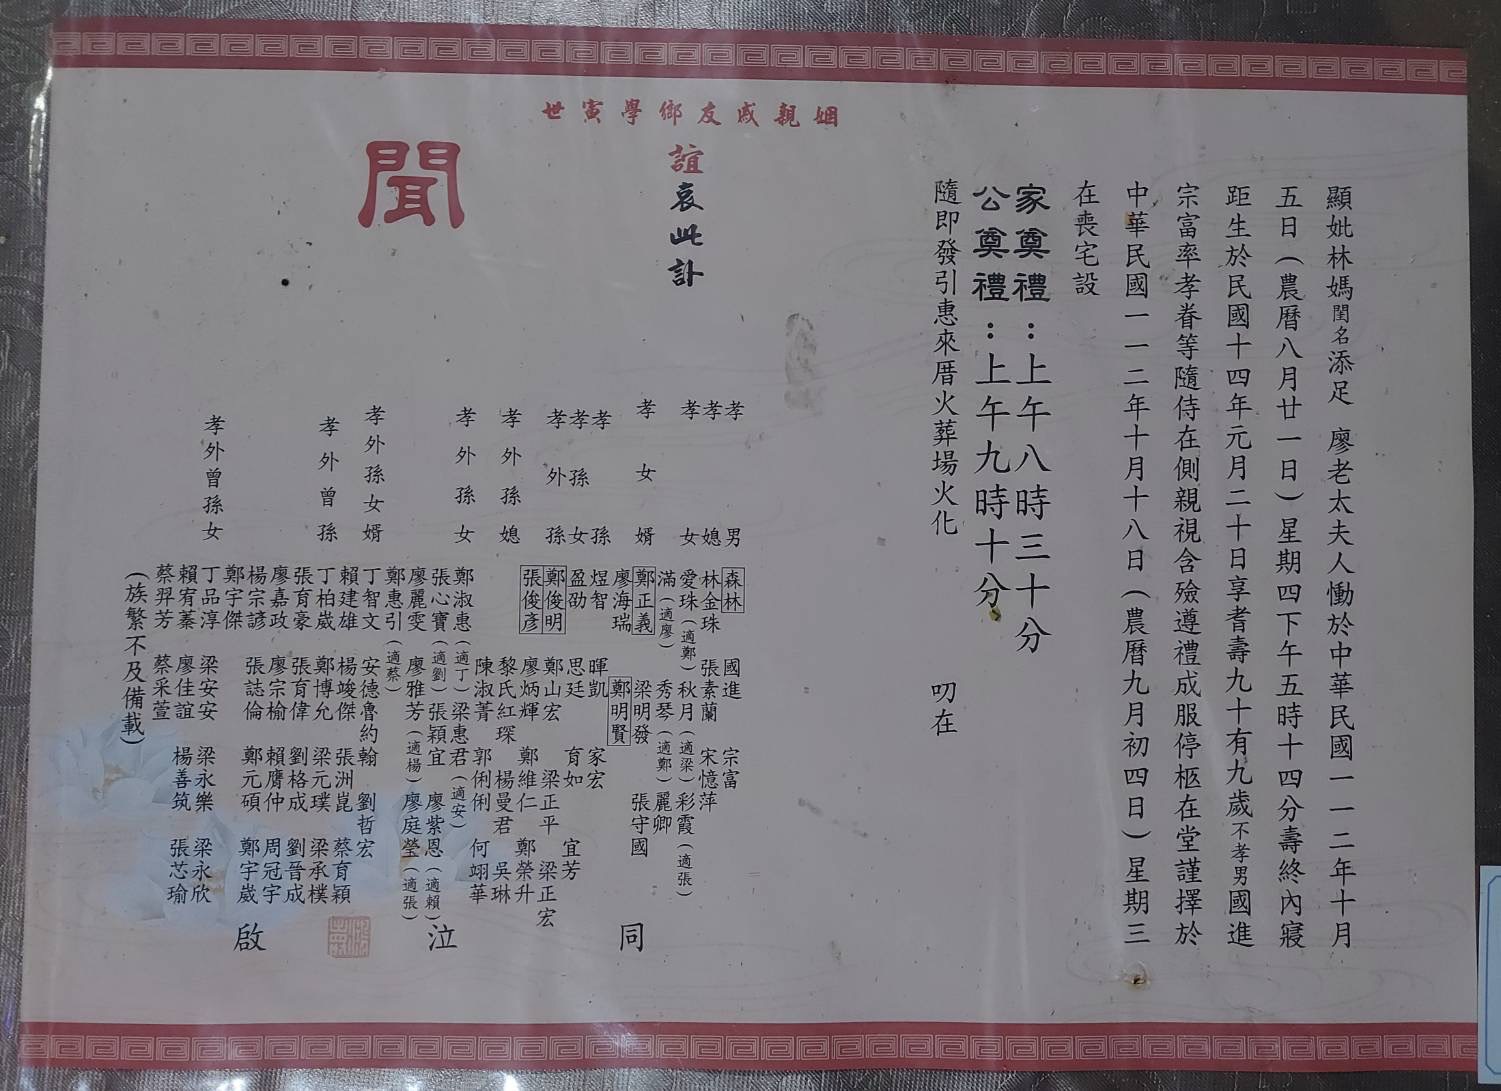 顯妣林媽閨名添足　廖老太夫人慟於中華民國一一二年十月
五日（農曆八月廿一日）星期四下午五時十四分壽終內寢
距生於民國十四年元月二十日享耆壽九十有九歲不孝男國進
宗富率孝眷等隨侍在側親視含殮遵禮成服停柩在堂謹擇於
中華民國一一二年十月十八日（農曆九月初四日）星期三
在喪宅設
家奠禮：上午八時三十分
公奠禮：上午九時十分
隨即發引惠來厝火葬場火化　叨在
姻親戚友鄉學寅世
誼哀此訃
聞
孝男　森林　國進　宗富
孝媳　林金珠　張素蘭　宋憶萍
孝女　愛珠（適鄭）秋月（適梁）彩霞（適張）
滿（適廖）秀琴（適鄭）麗卿
孝女婿　鄭正義　梁明發　張守國
廖海瑞　鄭明賢
孝孫　煜智　暉凱　家宏
孝孫女　盈劭　思廷　育如　宜芳
孝外孫　鄭俊明　鄭山宏　梁正平　梁正宏
張俊彥　廖炳輝　鄭維仁　鄭榮升
孝外孫媳　黎氏紅琛　楊曼君　吳琳
陳淑菁　郭俐俐　何翊華
孝外孫女　鄭淑惠（適丁）梁惠君（適安）
張心寶（適劉）張穎宜　廖紫恩（適賴）
廖麗雯　廖雅芳（適楊）廖庭瑩（適張）
鄭惠引（適蔡）
孝外孫女婿　丁智文　安德魯約翰　劉哲宏
賴建雄　楊竣傑　張洲崑　蔡育穎
孝外曾孫　丁柏崴　鄭博允　梁元璞　梁承樸
張育豪　張育偉　劉格成　劉晉成
廖嘉政　廖宗榆　賴膺仲　周冠宇
楊宗諺　張誌倫　鄭元碩　鄭宇崴
鄭宇傑
孝外曾孫女　丁品淳　梁安安　梁永樂　梁永欣
賴宥蓁　廖佳誼　楊善筑　張芯瑜
蔡羿芳　蔡采萱
（族繁不及備載）
同
泣
啟